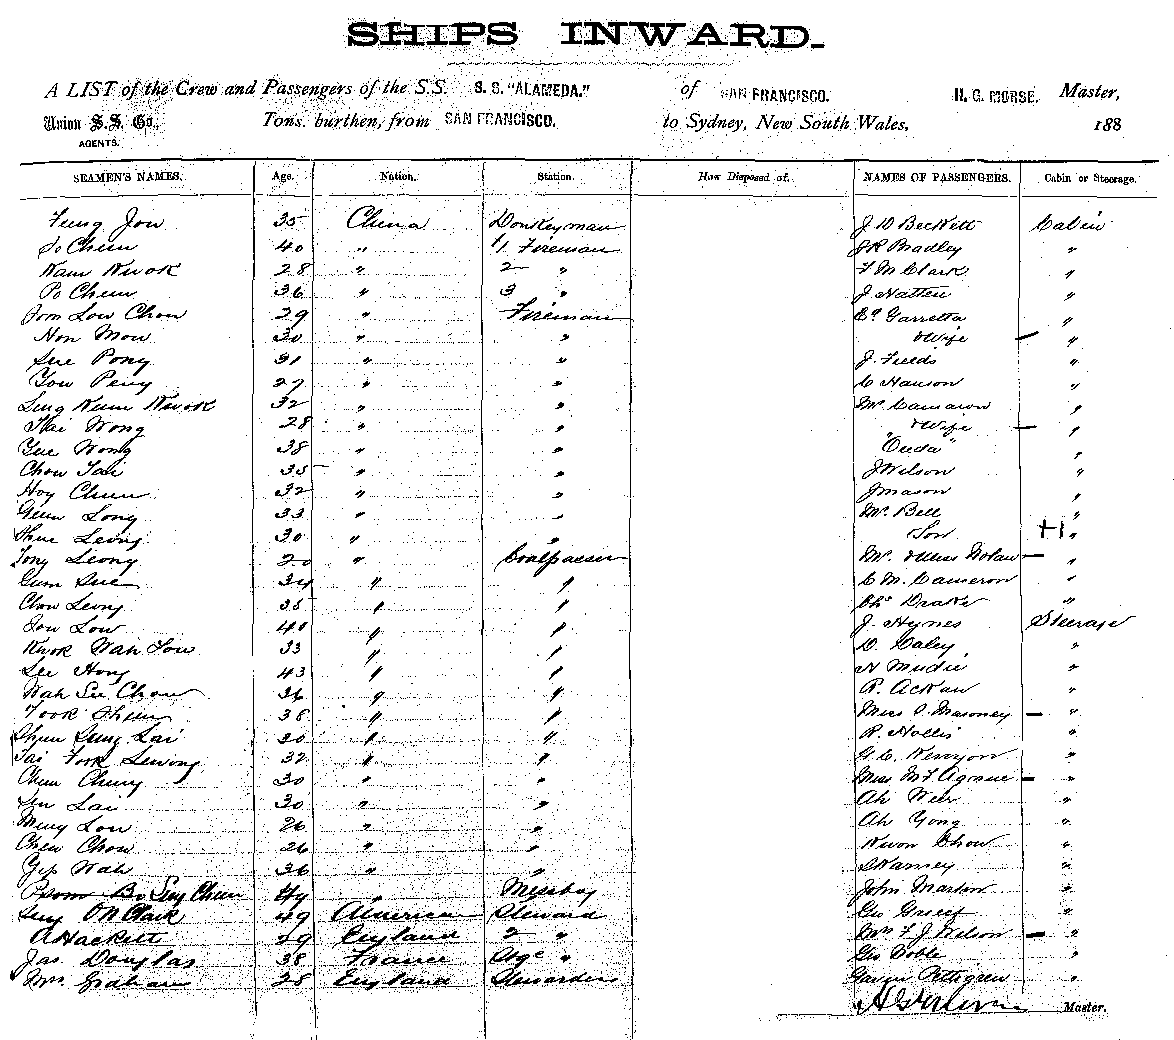 SHIPS INWARD.
A LIST of the Crew and Passengers of the S.S. S. S. "ALAMEDA." of SAN FRANCISCO. H. G. MORSE. Master,
Union S.S. Co., Tons. burthen, from SAN FRANCISCO. to Sydney, New South Wales, 188
AGENTS.
SEAMEN'S NAMES. Age. Nation. Station. How Disposed of. NAMES OF PASSENGERS. Cabin or Steerage.
Fung Jou 35 China Donkeyman J D Beckett Cabin
Jo Chun 40 " 1 Fireman J R Bradley "
Nam Kwok 28 " 2 " F M Clark "
Po Chun 36 " 3 " J Hatten "
Jom Low Chow 29 " Fireman Garretta "
Hon Mow 30 " " Wife "
Sue Pong 31 " " J. Fields "
You Peny 27 " " C Hanson "
Sung Kum Kwok 32 " " Mr Camaron "
Kai Wong 28 " " & Wife "
Yue Wong 38 " " "Ouda"
Chow Tai 35 " " J Wilson "
Hoy Chun 32 " " J Mason "
Geun Long 33 " " Mr. Bell "
Shue Leong 30 " " Son "
Tong Leong 20 " Coalpasser Mr. & Miss Nolan "
Gum Sue 34 " " C M. Cameron "
Chow Leong 35 " " Chs Drake "
Jow Low 40 " " J. Hynes Steerage
Kwok Wah Jow 33 " " D. Daley "
See Hong 43 " " H Mudie "
Wah See Chow 36 " " R. Ackan "
Fook Shun 38 " " Miss Masoney "
Shun Sung Lai 30 " " R. Hollis "
Tai Fook Leong 32 " " G. C. Kenyon "
Chun Chung 30 " " Miss M F Agnew "
Sun Lai 30 " " Ah Weer "
Meng Low 26 " " Ah Yong "
Chew Chow 26 " " Kwon Chow "
Yip Wah 36 " " "
Bo Sing Chun 44 " Messboy John Marton "
Clark 49 America Steward Geo "
A Hackett 29 England 2 " Mrs F J Wilson "
Jas. Douglas 38 France " Geo Noble "
Mrs. Graham 28 England Stewardess Pettigrew "
Master.